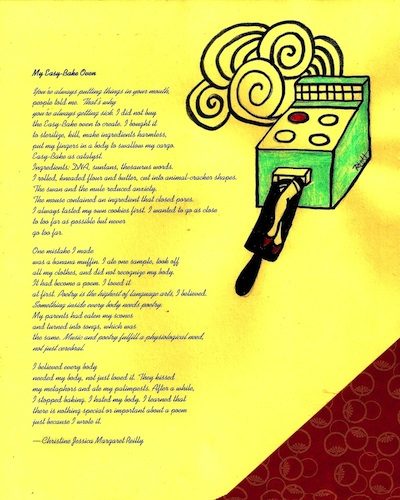 My Easy-Bake Oven
You're always putting things in your mouth,
people told me. That's why
you're always getting sick. I did not buy
the Easy-Bake oven to create. I bought it
to sterilize, kill, make ingredients harmless,
put my fingers in a body to swallow my cargo.
Easy-Bake as catalyst.
Ingredients: DNA, suntans, thesaurus words.
I rolled, kneaded flour and butter, cut into animal-cracker shapes.
The swan and the mule reduced anxiety.
The mouse contained an ingredient that closed pores.
I always tasted my own cookies first. I wanted to go as close
to too far as possible but never
go too far.
One mistake I made
was a banana muffin. I ate one sample, took off
all my clothes, and did not recognize my body.
It had become a poem. I loved it
at first. Poetry is the highest of language arts, I believed.
Something inside every body needs poetry.
My parents had eaten my scones
and turned into songs, which was
the same. Music and poetry fulfill a physiological need,
not just cerebral.
I believed every body
needed my body, not just loved it. They kissed
my metaphors and ate my palimpsests. After a while,
I stopped baking. I hated my body. I learned that
there is nothing special or important about a poem
just because I wrote it.
—Christine Jessica Margaret Reilly